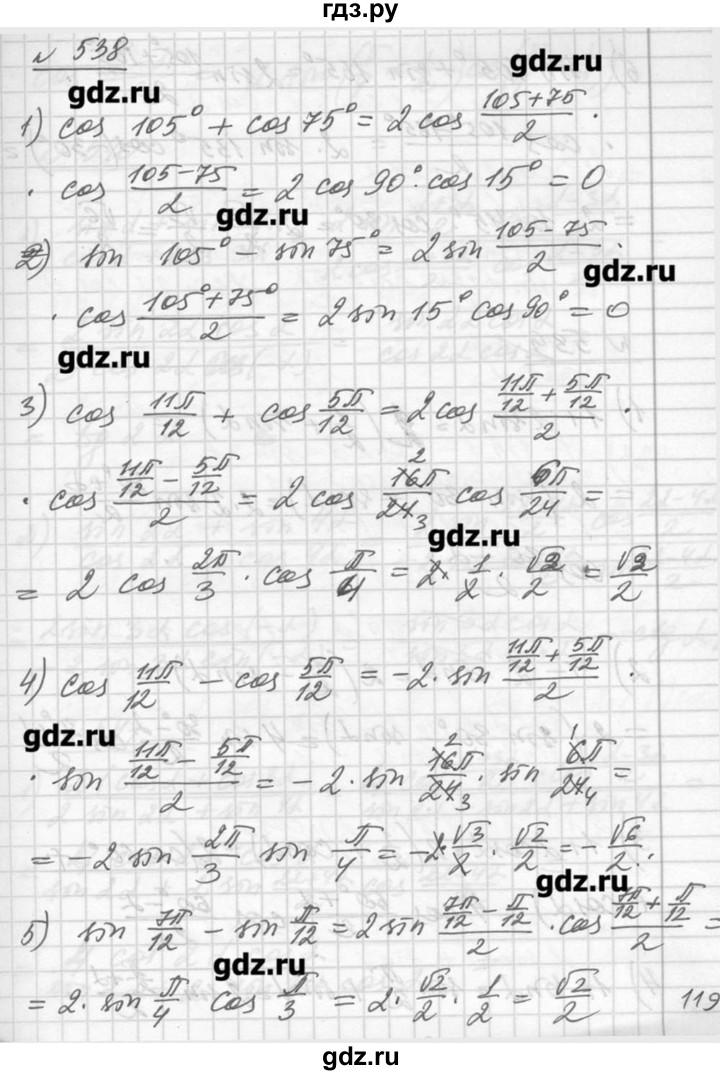 гдз.ру
№ 538
gdz.ru
gdz.ru
1) cos 105° + cos 75° = 2 cos (105+75)/2 ·
· cos (105-75)/2 = 2 cos 90° · cos 15° = 0
gdz.ru
2) sin 105° - sin 75° = 2 sin (105-75)/2 ·
gdz.ru
· cos (105°+75°)/2 = 2 sin 15° cos 90° = 0
gdz.ru
3) cos 11π/12 + cos 5π/12 = 2 cos (11π/12 + 5π/12)/2 ·
· cos (11π/12 - 5π/12)/2 = 2 cos 16π/24 cos 6π/24 =
2 3
gdz.ru
= 2 cos 2π/3 · cos π/4 = 2 · 1/2 · √2/2 = √2/2
4) cos 11π/12 - cos 5π/12 = -2 · sin (11π/12 + 5π/12)/2 ·
gdz.ru
· sin (11π/12 - 5π/12)/2 = -2 · sin 16π/24 · sin 6π/24 =
2 3 1 4
= -2 sin 2π/3 sin π/4 = -2 · √3/2 · √2/2 = -√6/2.
gdz.ru
5) sin 7π/12 - sin π/12 = 2 sin (7π/12 - π/12)/2 · cos (7π/12 + π/12)/2 =
gdz.ru
= 2 · sin π/4 cos π/3 = 2 · √2/2 · 1/2 = √2/2
119
gdz.ru